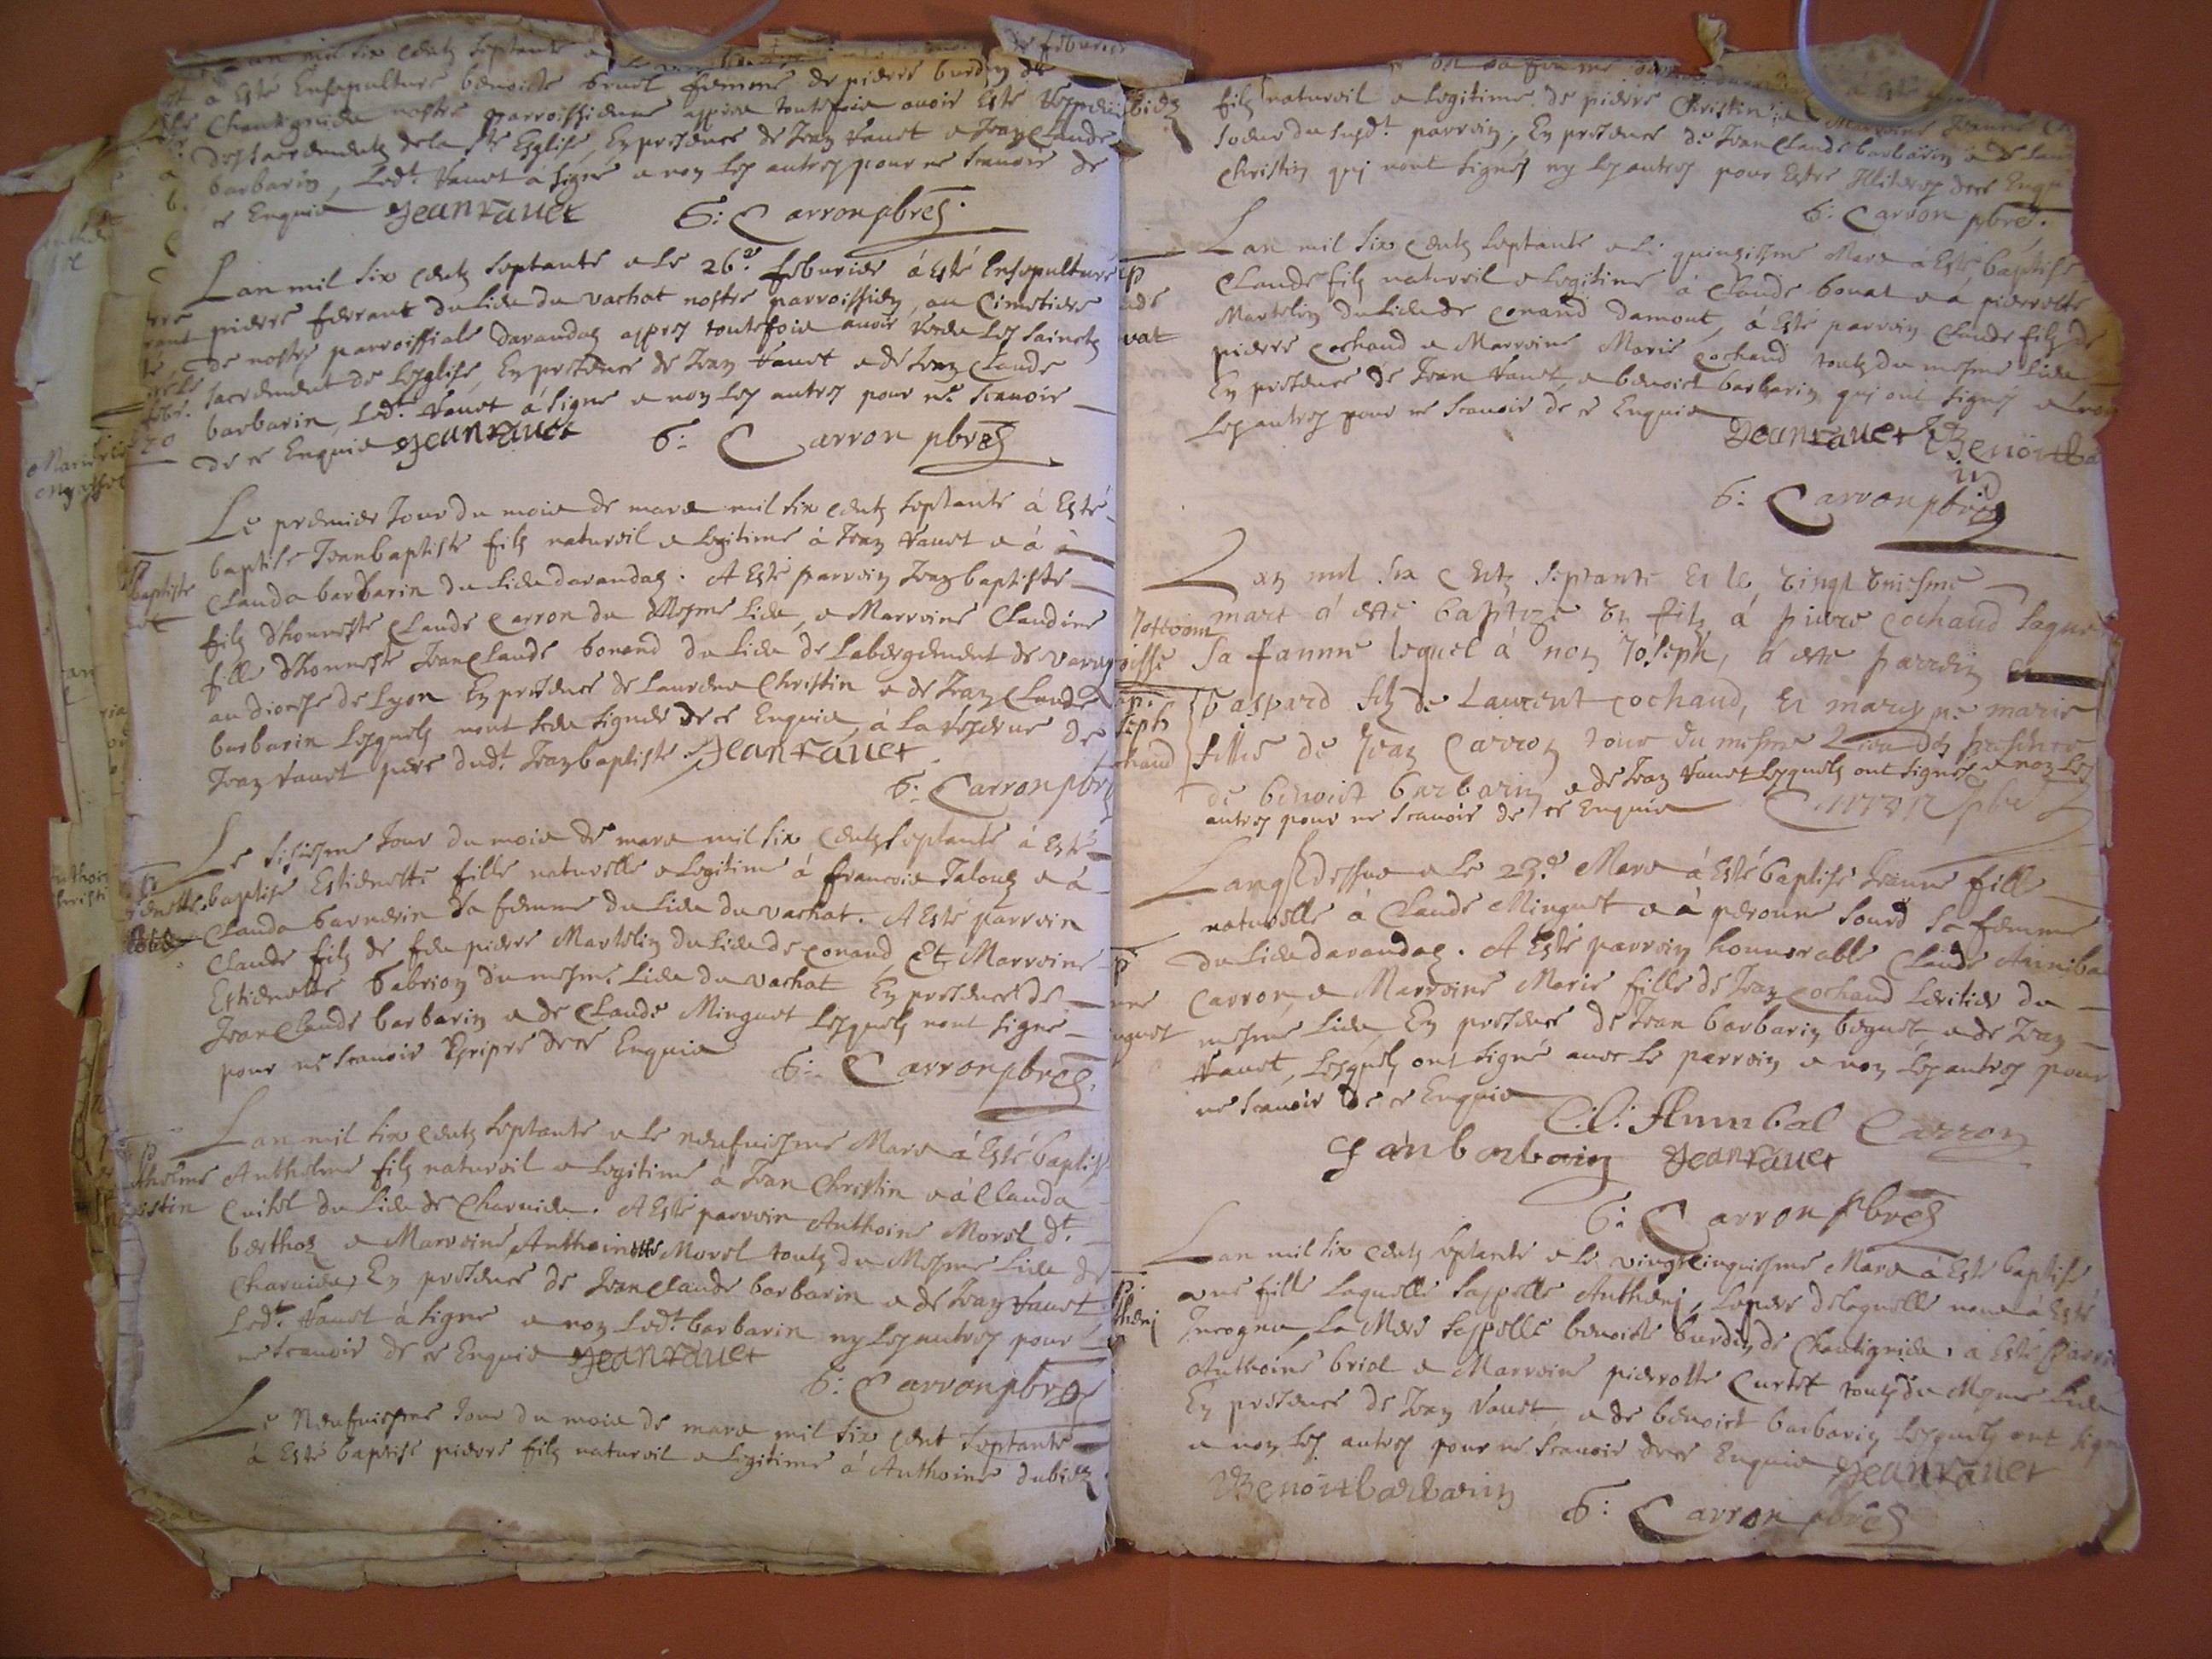 an mil six centz septante e
a Esté Ensepulturé benoiste bruel femme de pierre burdin de
Chantignieu nostre parroissienne appres toutefois avoir Esté
des sacrementz de la ste Esglise, En presence de Jean Vauet e Jean Claude
barbarin, Ledt. Vauet a signé e non les autres pour ne scauoir de
ce Enquis Jean Vauet G: Carron pbre
Lan mil six centz septante e le 26e febvrier à Esté Ensepulturé
pierre ferrant du lieu du vachat nostre parroissien, au Cimetiere
de nostre parroissiale darandas appres toutefois auoir receu les saincts
sacrement de Lesglise, En presence de Jean Vauet e de Jean Claude
barbarin, Ledt. Vauet à signé e non les autres pour ne scauoir
de ce Enquis Jean Vauet G: Carron pbre
Le premier Jour du mois de mars mil six centz septante à Esté
baptisé Jean baptiste filz naturel e legitime à Jean Vauet e à
Clauda barbarin du lieu darandas. A Esté parrain Jean baptiste
filz dhonneste Claude Carron du Mesme lieu, e Marraine Claudine
fille dhonneste Jean Claude bonand du lieu de Labergement de Varey
au diocese de Lyon En presence de Laurens Christin e de Jean Claude
barbarin Lesquelz nont sceu signer de ce Enquis, à la reserue de
Jean Vauet pere dudt. Jean baptiste. Jean Vauet
G: Carron pbre
Le sixiesme Jour du mois de mars mil six centz septante à Esté
baptisé Estiennette fille naturelle e legitime à francois Jaloux e à
Clauda barnerin sa femme du lieu du vachat. A Esté parrain
Claude filz de feu pierre Martelin du lieu de Conand, Et Marraine
Estiennette Gabrion du mesme lieu du vachat En presence de
Jean Claude barbarin e de Claude Minguet lesquelz nont signé
pour ne scauoir Escripre de ce Enquis
G: Carron pbre
Lan mil six centz septante e le neufuiesme Mars à Esté baptisé
Anthelme filz naturel e legitime à Jean Christin e à Clauda
Cuitel du lieu de Charuieu. A Esté parrain Anthoine Morel dt.
berthoz e Marraine Anthoinette Morel toutz du Mesme lieu de
Charuieu, En presence de Jean Claude barbarin e de Jean Vauet
Ledt. Vauet à signé e non Ledt. barbarin ny les autres pour
ne scauoir de ce Enquis Jean Vauet
G: Carron pbre
Le Neufuiesme Jour du mois de mars mil six cent septante
à Esté baptisé pierre filz naturel e legitime à Anthoine dubiez
filz naturel e legitime de pierre Christin e Marraine Jeanne
soeur du susdt. parrain, En presence de Jean Claude barbarin e de
Christin qui nont signés ny les autres pour Estre Illiteres de ce Enquis
G: Carron pbre.
Lan mil six centz septante e le quinziesme Mars à Esté baptisé
Claude filz naturel e legitime à Claude bonat e à pierrette
Martelin du lieu de Conand damont, à Esté parrain Claude filz de
pierre Cochand e Marraine Marie Cochand toutz du mesme lieu
En presence de Jean Vauet, e benoict barbarin qui ont signés e non
Les autres pour ne scauoir de ce Enquis
Jean Vauet Benoit ba
G: Carron pbre
Lan mil six Centz septante Et le Vingt Vniesme
mars à este baptize Vn filz à pierre Cochand
sa famme lequel à nom Joseph, à este parrein
Gaspard filz de Laurent Cochand, Et marrene marie
fillie de Jean Carron tous du mesme
de benoict barbarin e de Jean Vauet lesquelz ont signés e non les
autres pour ne scauoir de ce Enquis Carron pbre
Lan susdit e le 23e Mars à Esté baptisé Jeanne fille
naturelle à Claude Minguet e à peronne sourd sa femme
du lieu darandas. A Esté parrain honnorable Claude Anniba
Carron, e Marraine Marie fille de Jean Cochand du
mesme lieu, En presence de Jean barbarin e de Jean
Vauet, Lesquelz ont signé auec le parrain e non les autres pour
ne scauoir de ce Enquis
Annibal Carron
Jean Vauet
G: Carron pbre
Lan mil six centz septante e le vingtcinquiesme Mars à Esté baptisé
une fille laquelle sappelle Anthen, le pere de laquelle nous à Esté
Incognu, La Mere sappelle benoiste burdin de Chantignieu, à Esté Parrain
Anthoine briel e Marraine pierrette Curtet toutz du Mesme lieu
En presence de Jean Vauet, e de benoict barbarin lesquelz ont signé
e non les autres pour ne scauoir de ce Enquis Jean Vauet
Benoit barbarin G: Carron pbre